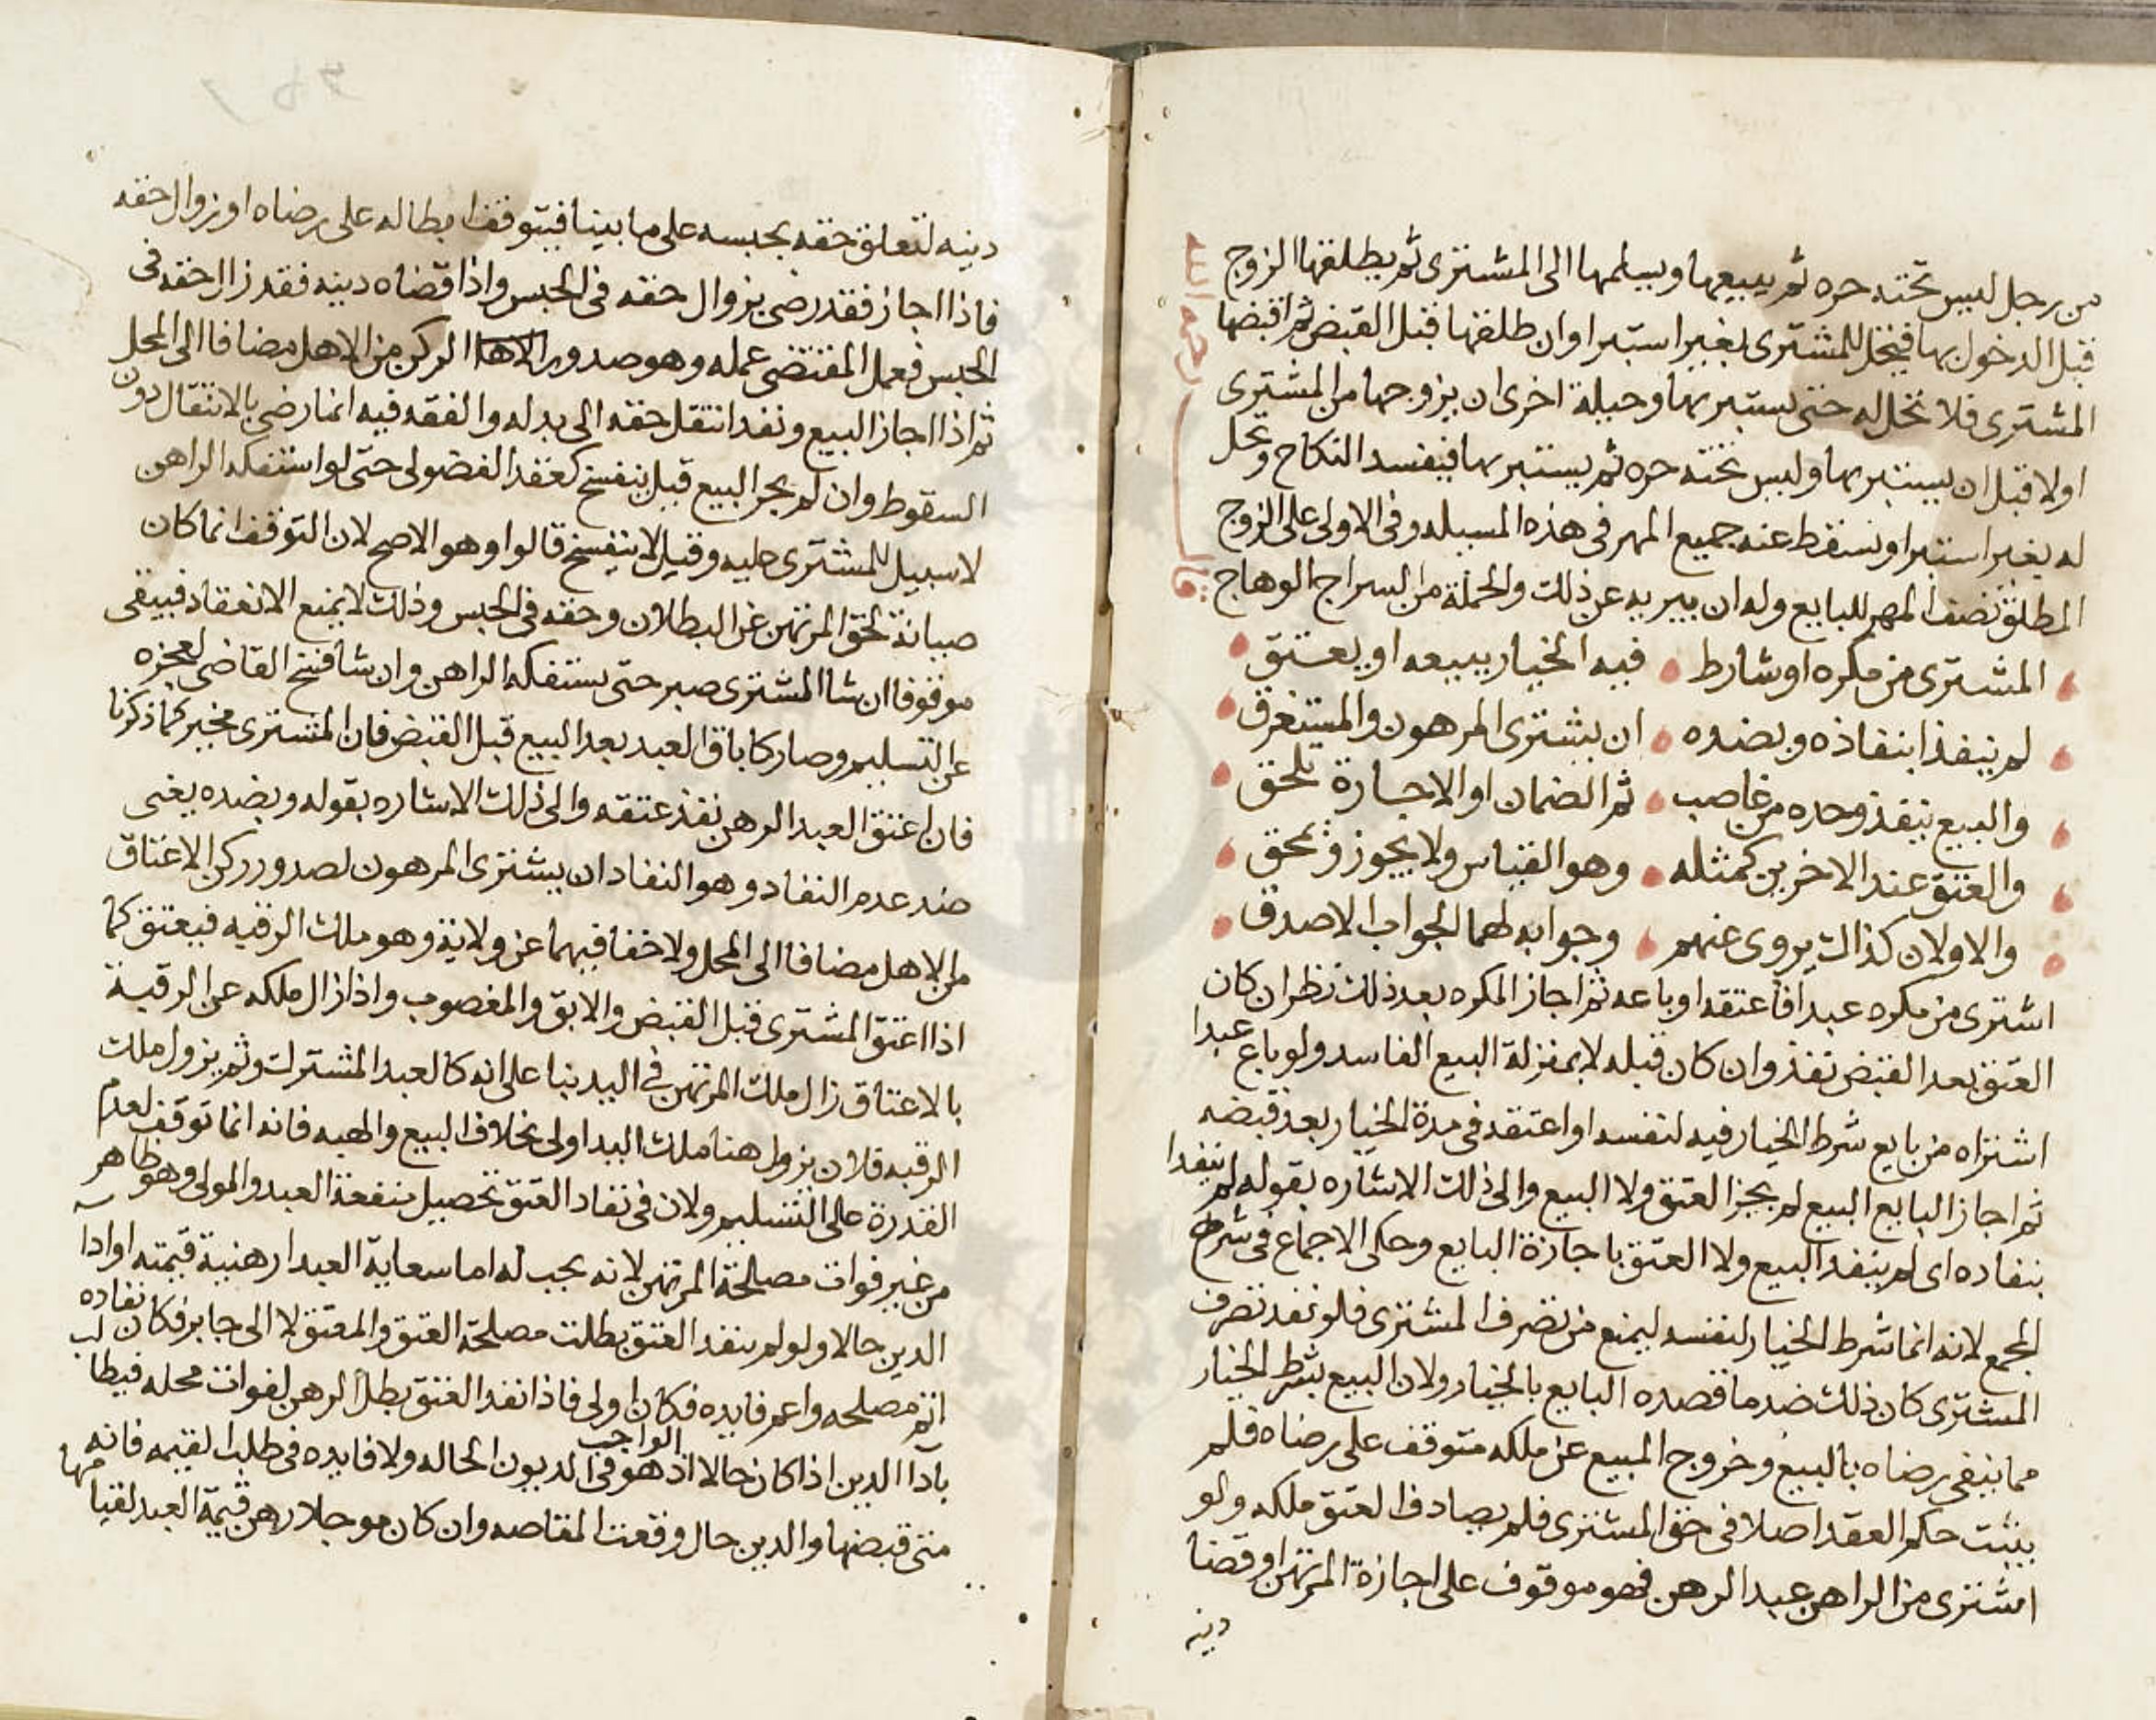 من رجل ليس تحته حره ثم يبيعها ويسلمها الى المشترى ثم يطلقها الزوج
قبل الدخول بها فيحل للمشترى بغير استبرا وان طلقها قبل القبض ثم اقبضها
المشترى فلا تحل له حتى يستبريها وحيلة اخرى ان يزوجها من المشترى
اولا قبل ان يستبريها وليس تحته حره ثم يستبريها فيفسد النكاح وتحل
له بغير استبرا ويسقط عنه جميع المهر فى هذه المسيله وفى الاولى على الزوج
المطلق نصف المهر للبايع وله ان يبريه عن ذلك والجملة من السراج الوهاج
قال رحمه الله
المشترى من مكره او شارط فيه الخيار يبيعه او يعتق
لم ينفذا بنفاذه وبضده ان يشترى المرهون والمستغرق
والبيع ينفذ وحده من غاصب ثم الضمان او الاجازة تلحق
والعتق عند الاخرين كمثله وهو القياس ولا يجوز ويمحق
والاولان كذاك يروى عنهم وجوابه لهما الجواب الاصدق
اشترى من مكره عبدا فاعتقه او باعه ثم اجاز المكره بعد ذلك نظر ان كان
العتق بعد القبض نفذ وان كان قبله لا بمنزلة البيع الفاسد ولو باع عبدا
اشتراه من بايع شرط الخيار فيه لنفسه او اعتقه فى مدة الخيار بعد قبضه
ثم اجاز البايع البيع لم يجز العتق ولا البيع والى ذلك الاشاره بقوله لم ينفدا
بنفاده اى لم ينفد البيع ولا العتق باجازة البايع وحكى الاجماع فى شرح
المجمع لانه انما شرط الخيار لنفسه ليمنع من تصرف المشترى فلو نفد تصرف
المشترى كان ذلك ضد ما قصده البايع بالخيار ولان البيع بشرط الخيار
مما ينفى رضاه بالبيع وخروج المبيع عن ملكه متوقف على رضاه فلم
يثبت حكم العقد اصلا فى حق المشترى فلم يصادف العتق ملكه ولو
اشترى من الراهن عبد الرهن فهو موقوف على اجازة المرتهن او قضا
دينه
دينه لتعلق حقه بحبسه على ما بينا فيتوقف ابطاله على رضاه او زوال حقه
فاذا اجاز فقد رضى بزوال حقه فى الحبس واذا قضاه دينه فقد زال حقه فى
الحبس فعمل المقتضى عمله وهو صدور الركن من الاهل مضافا الى المحل
ثم اذا اجاز البيع ونفد انتقل حقه الى بدله والفقه فيه انما رضى بالانتقال دون
السقوط وان لم يجز البيع قيل ينفسخ كعقد الفضولى حتى لو استفكه الراهن
لا سبيل للمشترى عليه وقيل لا ينفسخ قالوا وهو الاصح لان التوقف انما كان
صيانة لحق المرتهن عن البطلان وحقه فى الحبس وذلك لا يمنع الانعقاد فيبقى
موقوفا ان شا المشترى صبر حتى يستفكه الراهن وان شا فسخ القاضى لعجزه
عن التسليم وصار كاباق العبد بعد البيع قبل القبض فان المشترى مخير كما ذكرنا
فان اعتق العبد الرهن نفذ عتقه والى ذلك الاشاره بقوله وبضده يعنى
ضد عدم النفاد وهو النفاد ان يشترى المرهون لصدور ركن الاعتاق
من الاهل مضافا الى المحل ولا خفا فيهما عن ولاية وهو ملك الرقبه فيعتق كما
اذا اعتق المشترى قبل القبض والابق والمغصوب واذا زال ملكه عن الرقبة
بالاعتاق زال ملك المرتهن فى اليد بنا على انه كالعبد المشترك وثم يزول ملك
الرقبه فلان يزول هنا ملك اليد اولى بخلاف البيع والهبه فانه انما توقف لعدم
القدرة على التسليم ولان فى نفاد العتق تحصيل منفعة العبد والمولى وهو ظاهر
من غير فوات مصلحة المرتهن لانه يجب له اما سعاية العبد او رهنية قيمته او ادا
الدين حالا ولو لم ينفد العتق بطلت مصلحة العتق والمعتق لا الى جابر فكان نفاده
اتم مصلحه واعم فايده فكان اولى فاذا نفد العتق بطل الرهن لفوات محله فيطالب
بادا الدين اذا كان حالا اذ هو الواجب فى الديون الحاله ولا فايده فى طلب القيمه فانه
متى قبضها والدين حال وقعت المقاصه وان كان موجلا رهن قيمة العبد لقيامها